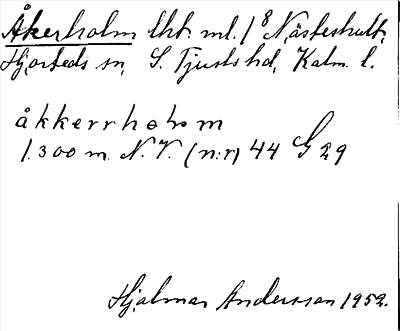 Åkerholm lht. ml. 1/8 Nästeshult,
Hjorteds sn, S. Tjusts hd, Kalm. l.
åkkerrholm
1.300 m. N.V. (n:r) 44 G 29
Hjalmar Andersson 1952.